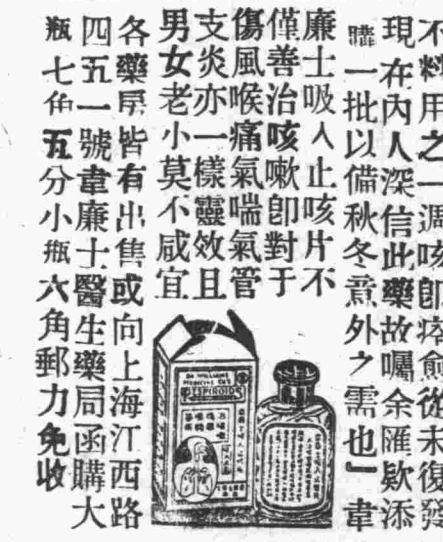 不料用之一週咳卽痊愈從未復發
現在內人深信此藥故囑余匯欵添
購一批以備秋冬意外之需也」韋
廉士吸入止咳片不
僅善治咳嗽卽對于
傷風喉痛氣喘氣管
支炎亦一樣靈效且
男女老小莫不咸宜
各藥房皆有出售或向上海江西路
四五一號韋廉士醫生藥局函購大
瓶七角五分小瓶六角郵力免收
DR WILLIAMS
MEDICINE CO'S